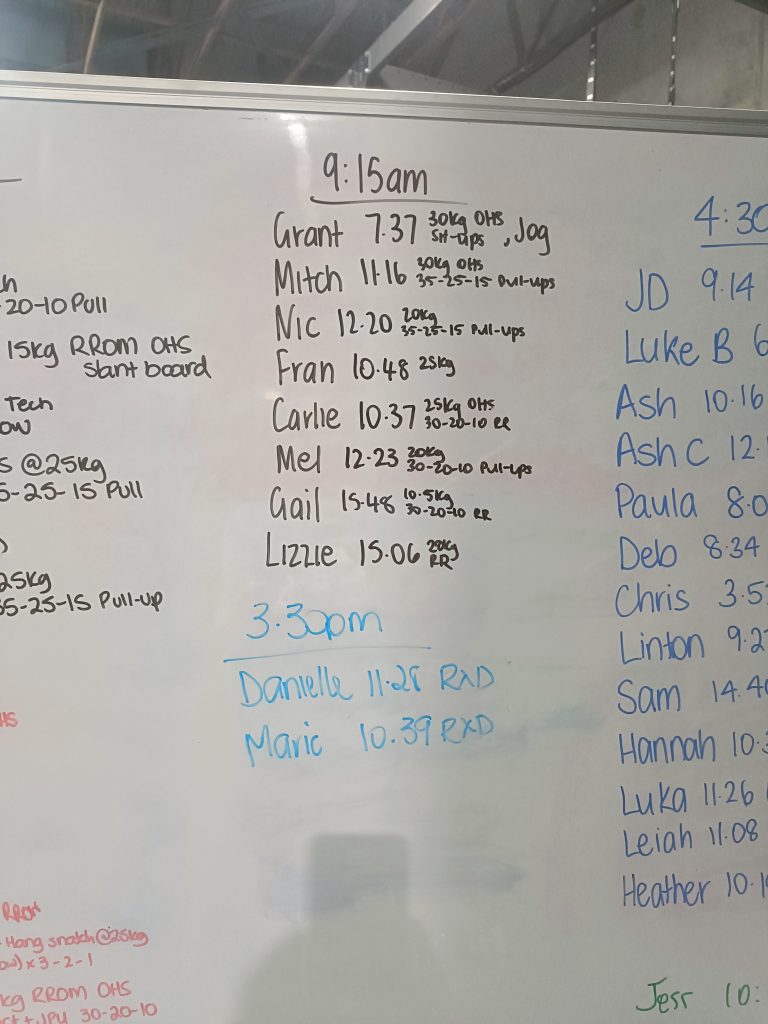 20-10 Pull
15kg RROM OHS
Slant board
Tech
@25kg
5-25-15 Pull
25kg
35-25-15 Pull-up
RROM
Hang snatch @25kg
x 3-2-1
kg RROM OHS
+ JPU 30-20-10
9:15am
Grant 7.37 30kg OHS
Sit-ups, Jog
Mitch 11.16 30kg OHS
35-25-15 Pull-ups
Nic 12.20 20kg
35-25-15 Pull-ups
Fran 10.48 25kg
Carlie 10.37 25kg OHS
30-20-10 RR
Mel 12.23 20kg
30-20-10 Pull-ups
Gail 15.48 10.5kg
30-20-10 RR
Lizzie 15.06 20kg
RR
3.30pm
Danielle 11.28 RXD
Maric 10.39 RXD
4:30
JD 9.14
Luke B 6
Ash 10.16
Ash C 12.
Paula 8.0
Deb 8.34
Chris 3.5
Linton 9.2
Sam 14.4
Hannah 10.
Luka 11.26
Leiah 11.08
Heather 10.1
Jess 10: